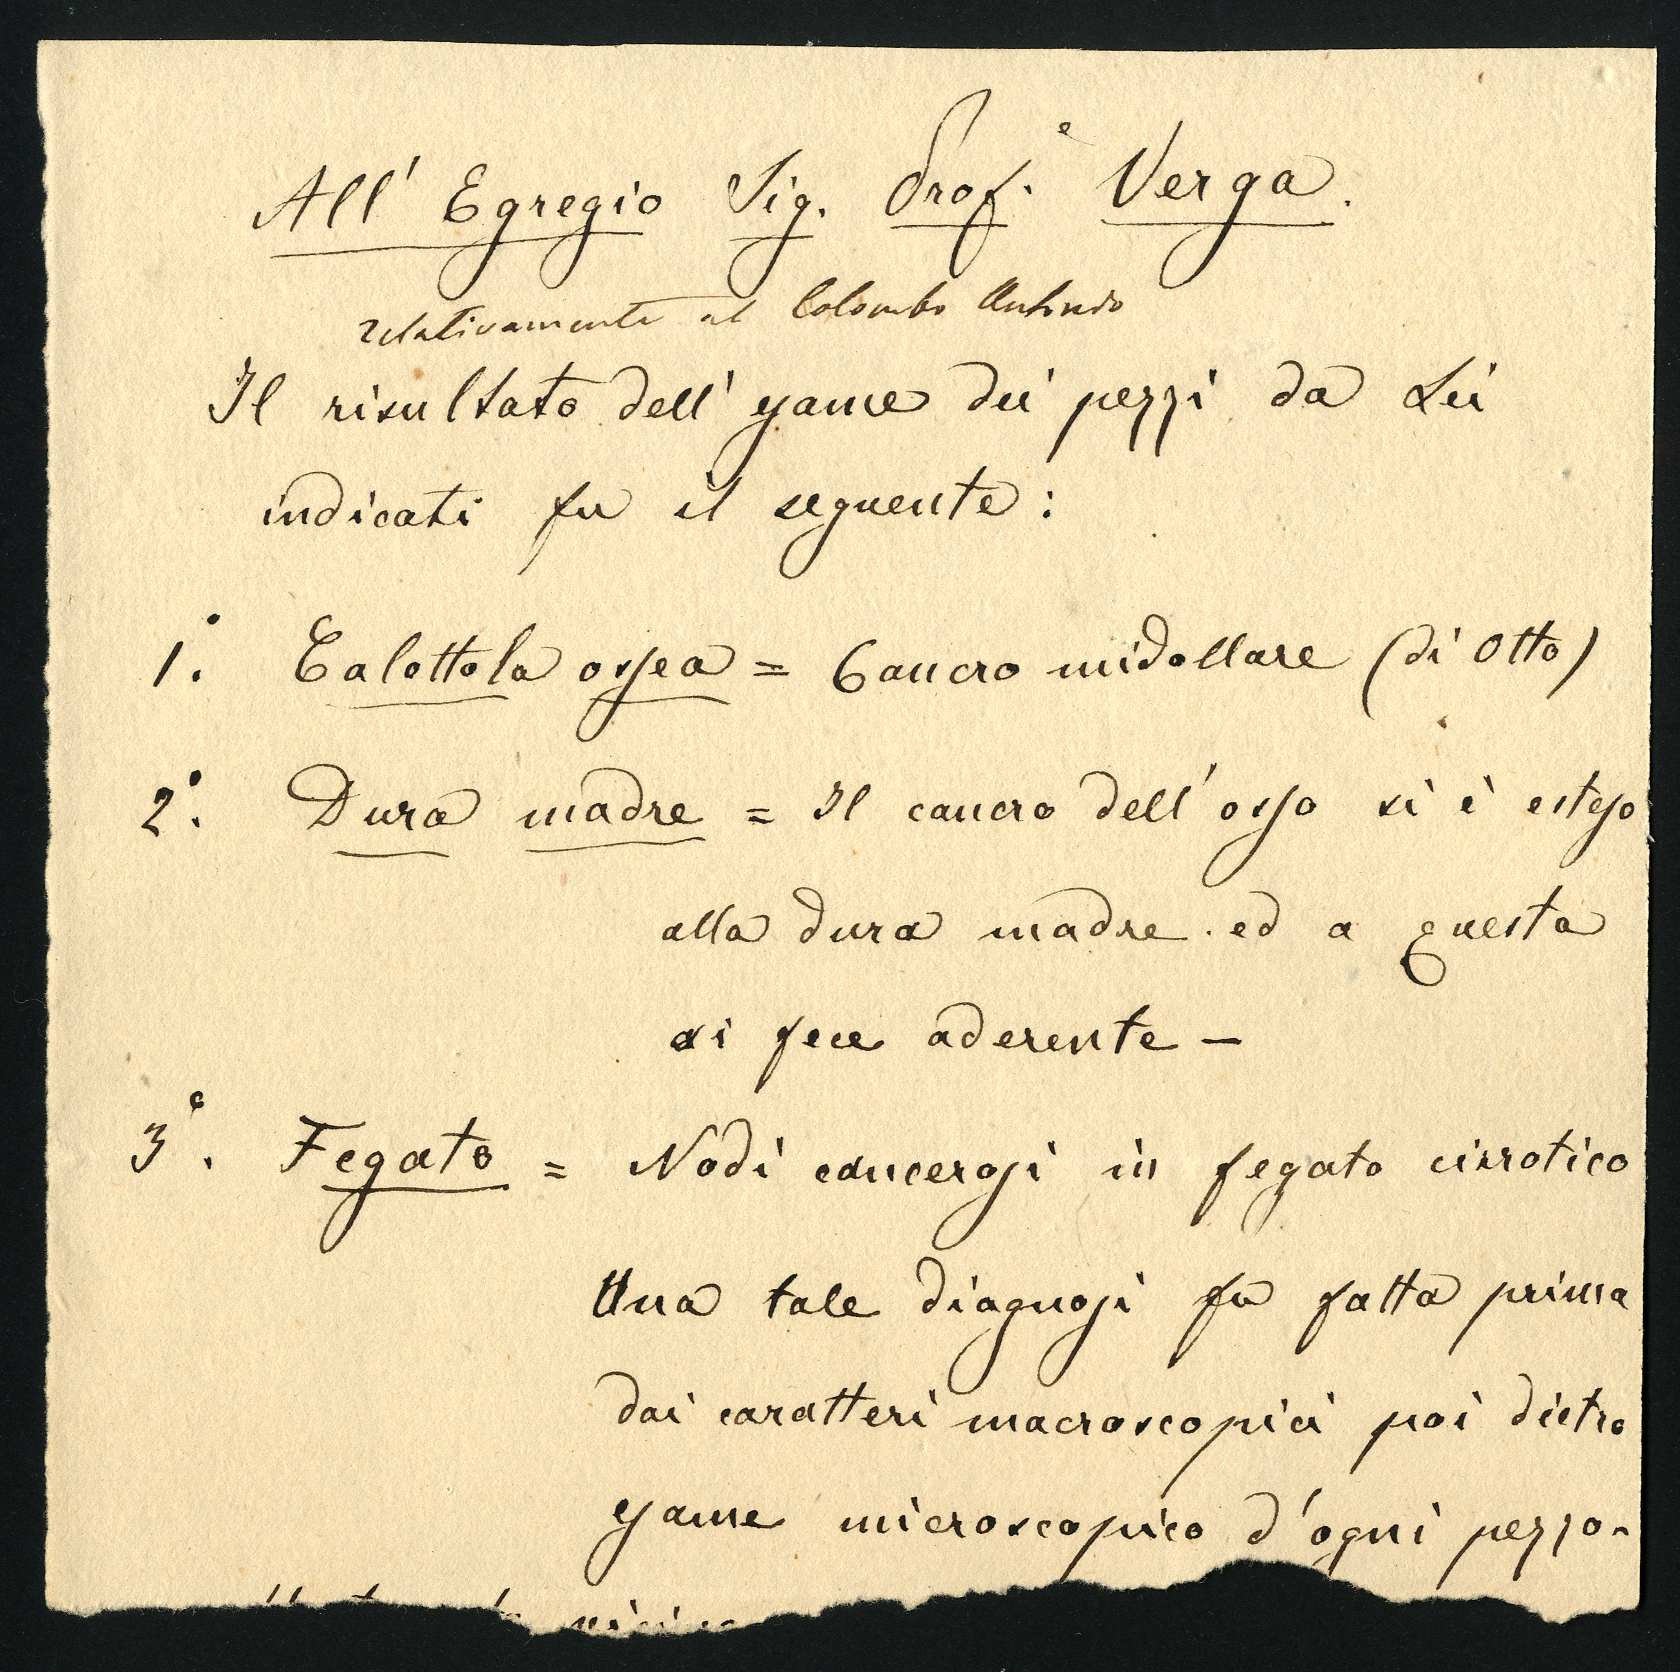 All' Egregio Sig. Prof.e Verga.
relativamente al Colombo Antonio
Il risultato dell' esame dei pezzi da Lei
indicati fu il seguente:
1°. Calottola ossea = Cancro midollare (di Otto)
2°. Dura madre = Il cancro dell'osso si è esteso
alla dura madre. ed a questa
si fece aderente —
3°. Fegato = Nodi cancerosi in fegato cirrotico
Una tale diagnosi fu fatta prima
dai caratteri macroscopici poi dietro
esame microscopico d'ogni pezzo-